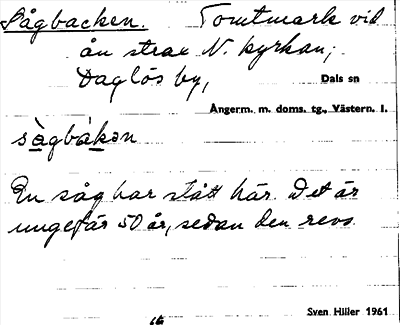 Sågbacken. Tomtmark vid
ån strax N. kyrkan,
Daglös by, Dals sn
Ångerm. m. doms. tg., Västern. l.
sågbákən
En såg har stått här. Det är
ungefär 50 år, sedan den revs.
Sven Hiller 1961